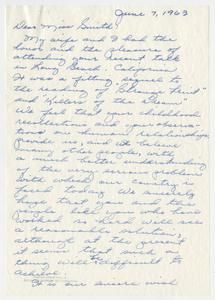 June 7, 1963
Dear Miss Smith:
My wife and I had the
honor and the pleasure of
attending your recent talk
in Long Beach, California.
It was a fitting sequel to
the reading of "Strange Fruit"
and "Killers of the Dream".
We feel that your childhood
recollections and your observa-
tions on human relationships
provide us, and we believe
many other people, with
a much better understanding
of the very serious problem
with which our country is
faced today. We sincerely
hope that you and the
people like you who have
worked so hard will see
a reasonable solution,
although at the present
it seems that such a
thing will be difficult to
achieve.
It is our sincere wish